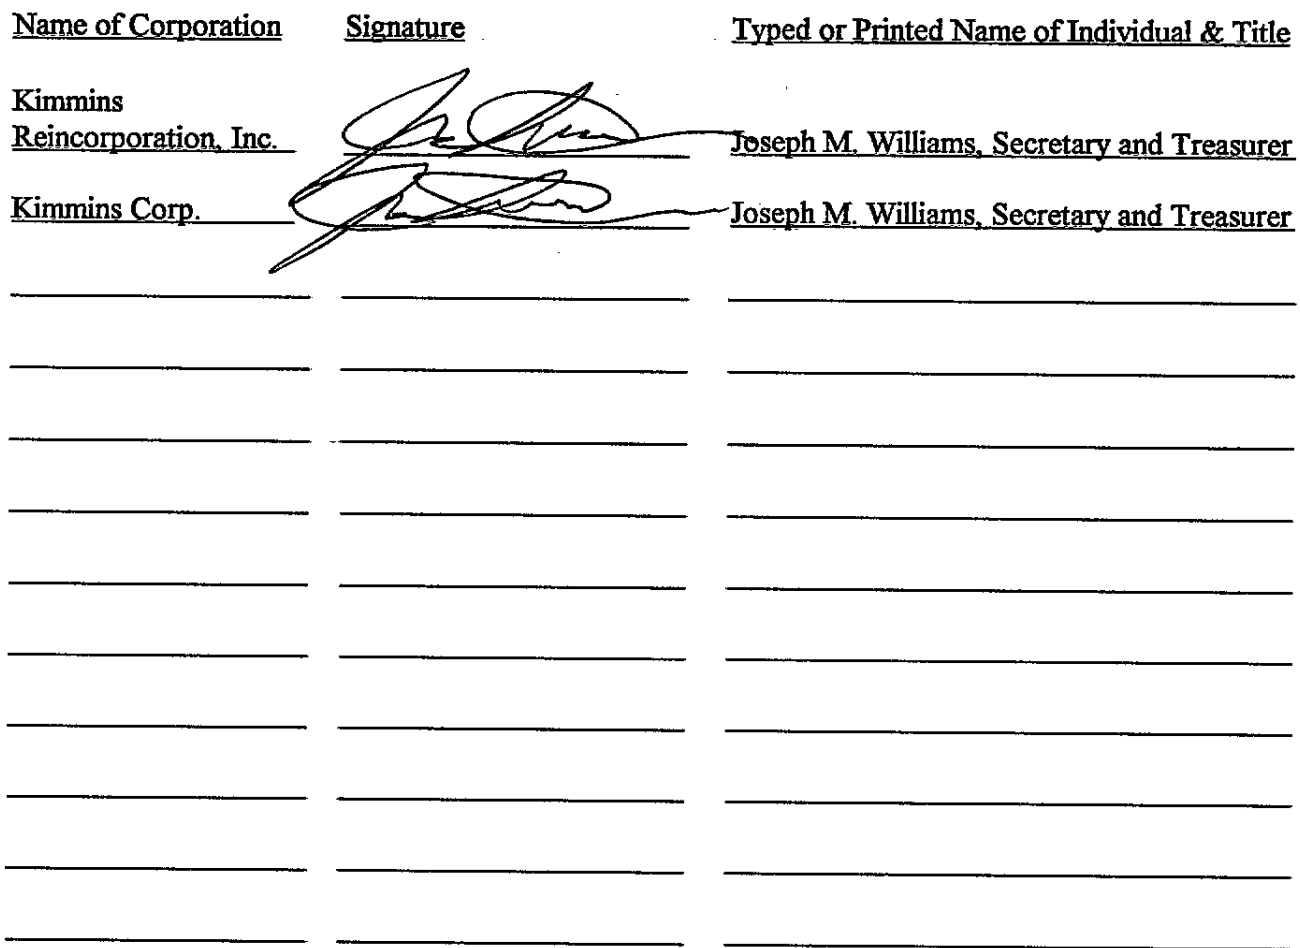 Name of Corporation Signature Typed or Printed Name of Individual & Title
Kimmins
Reincorporation, Inc. Joseph M. Williams, Secretary and Treasurer
Kimmins Corp. Joseph M. Williams, Secretary and Treasurer